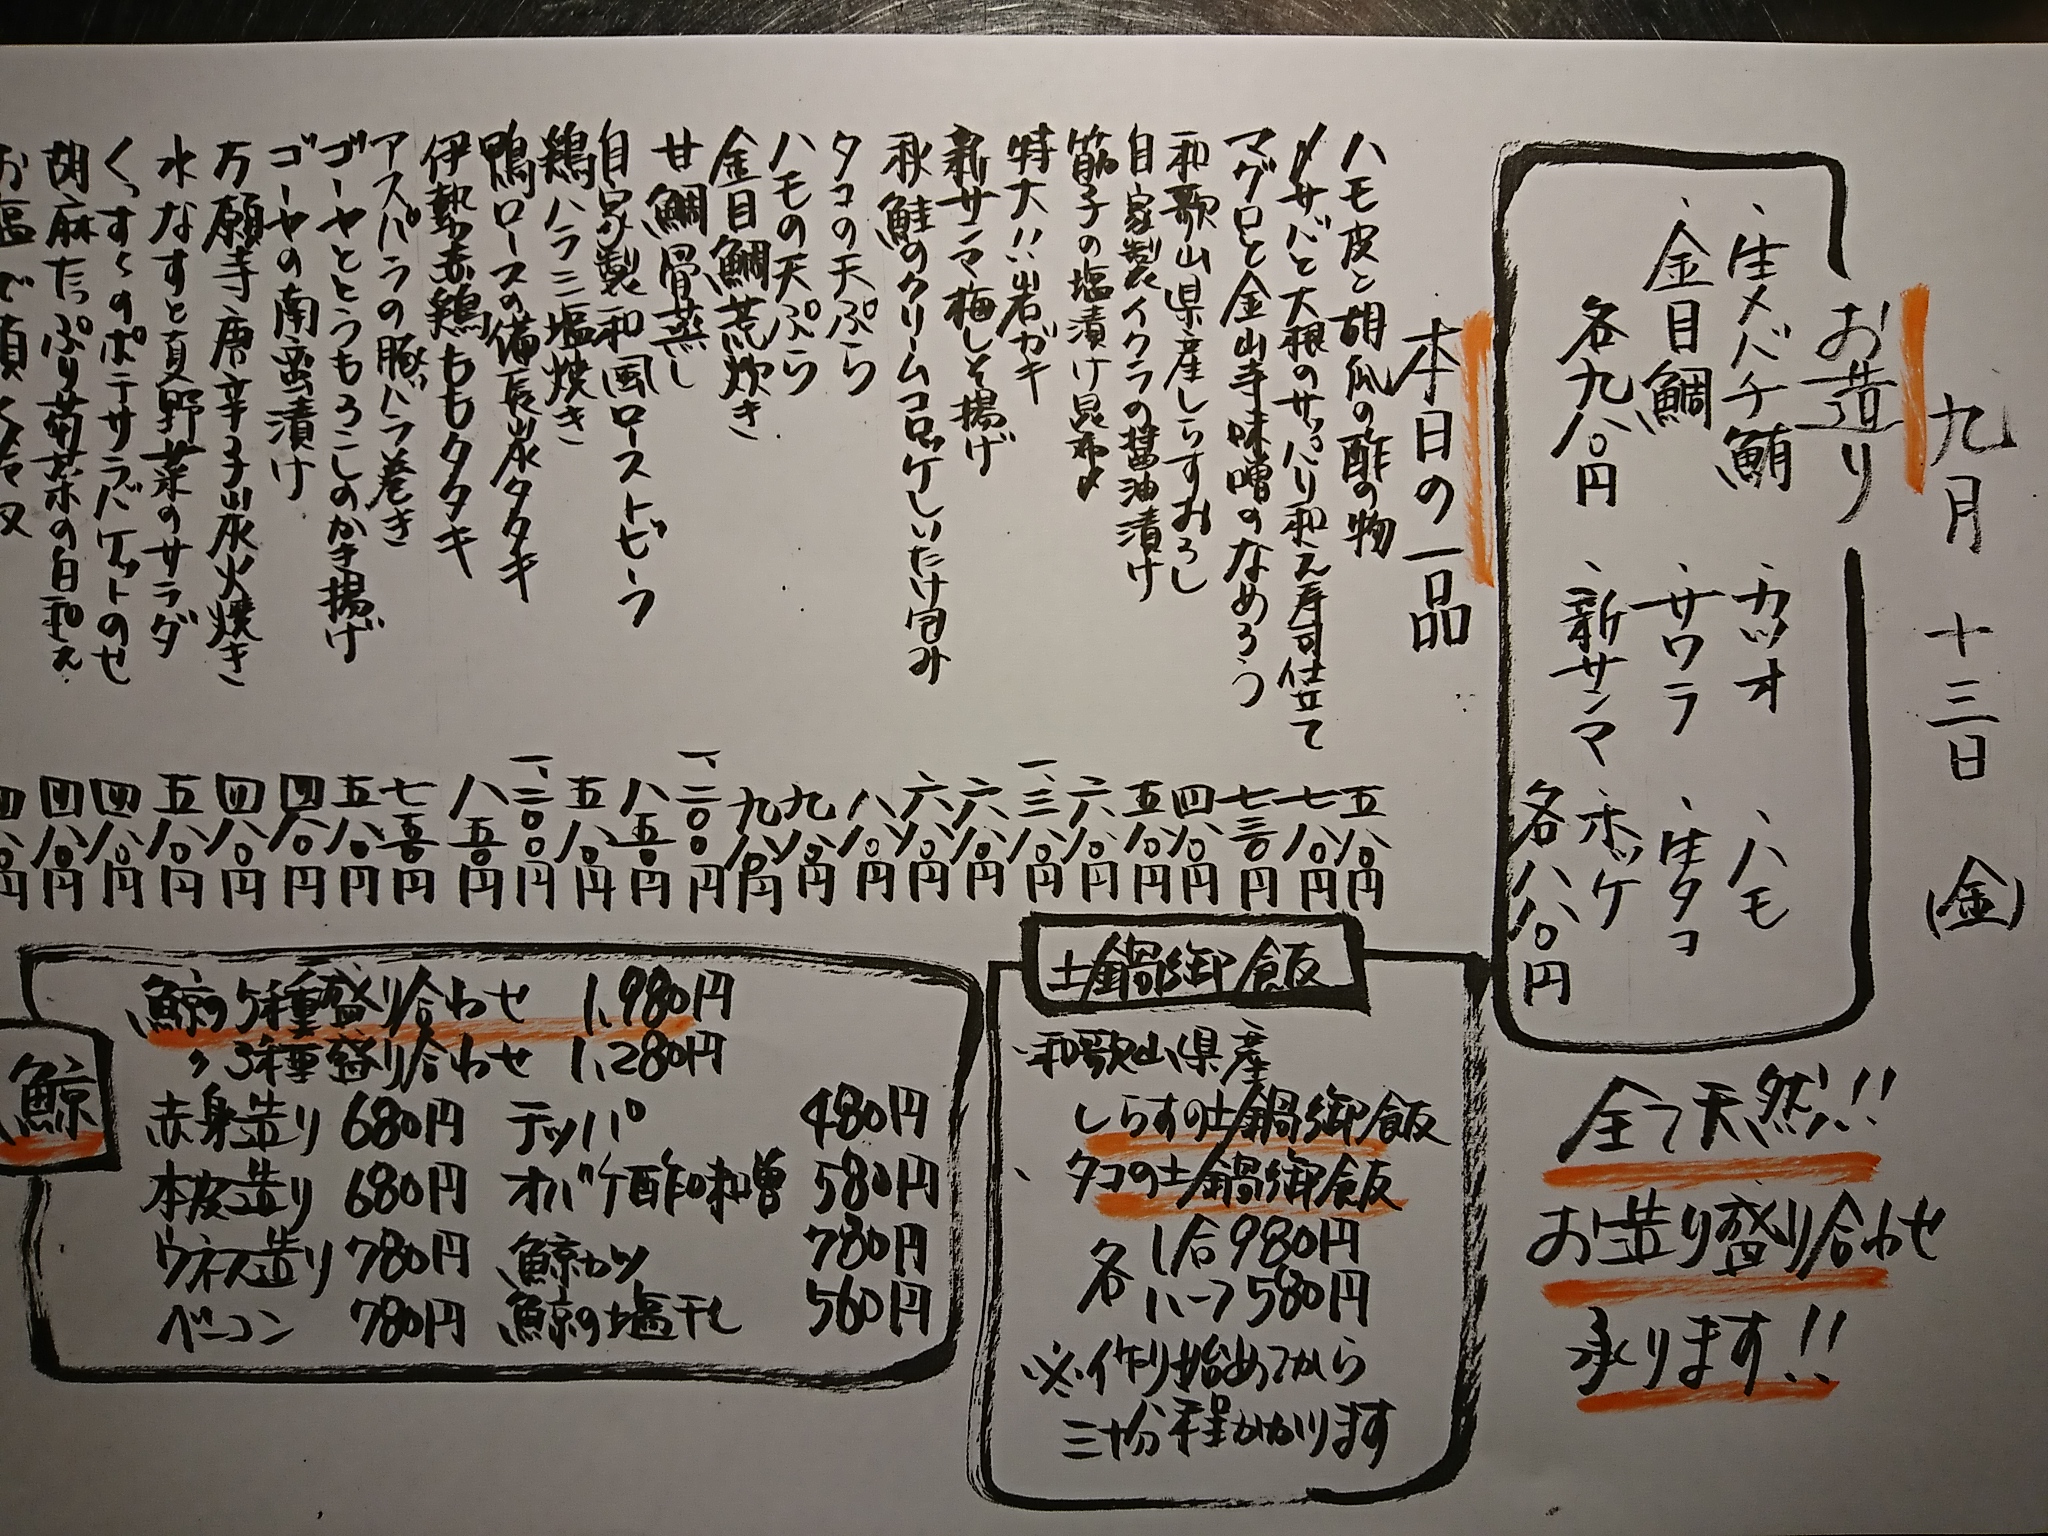 九月 十三日 (金)
お造り
、生メバチ鮪 、カツオ 、ハモ
、金目鯛 、サワラ 、生タコ
各九八〇円 、新サンマ 、ホッケ
各八八〇円
全て天然!!
お造り盛り合わせ
承ります!!
本日の一品
ハモ皮と胡瓜の酢の物 五八〇円
〆サバと大根のサッパリ和え寿司仕立て 七八〇円
マグロと金山寺味噌のなめろう 七三〇円
和歌山県産しらすおろし 四八〇円
自家製イクラの醤油漬け 五八〇円
筋子の塩漬け昆布〆 六八〇円
特大!!岩ガキ 一、三八〇円
新サンマ梅しそ揚げ 六八〇円
秋鮭のクリームコロッケしいたけ包み 六八〇円
タコの天ぷら 八八〇円
ハモの天ぷら 九八〇円
金目鯛荒炊き 九八〇円
甘鯛骨蒸し 一、二〇〇円
自家製和風ローストビーフ 八五〇円
鶏ハラミ塩焼き 五八〇円
鴨ロースの備長炭タタキ 一、二〇〇円
伊勢赤鶏ももタタキ 八五〇円
アスパラの豚バラ巻き 七五〇円
ゴーヤととうもろこしのかき揚げ 五八〇円
ゴーヤの南蛮漬け 四八〇円
万願寺唐辛子炭火焼き 四八〇円
水なすと真野菜のサラダ 五八〇円
くっすんのポテサラバケットのせ 四八〇円
胡麻たっぷり菊菜の白和え 四八〇円
お塩で頂く 四八〇円
土鍋御飯
、和歌山県産
しらすの土鍋御飯
、タコの土鍋御飯
各 1合980円
ハーフ580円
※作り始めてから
三十分程かかります
鯨
鯨の5種盛り合わせ 1,980円
〃3種盛り合わせ 1,280円
赤身造り 680円 テッパ 480円
本皮造り 680円 オバケ酢味噌 580円
ウネス造り 780円 鯨カツ 780円
ベーコン 780円 鯨の塩干し 560円